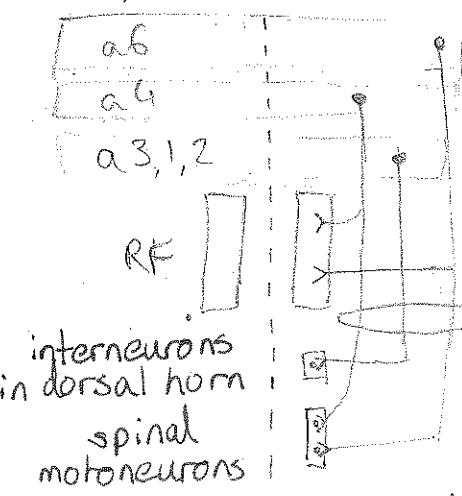 a6
a4
a 3,1,2
RF
interneurons
in dorsal horn
spinal
motoneurons